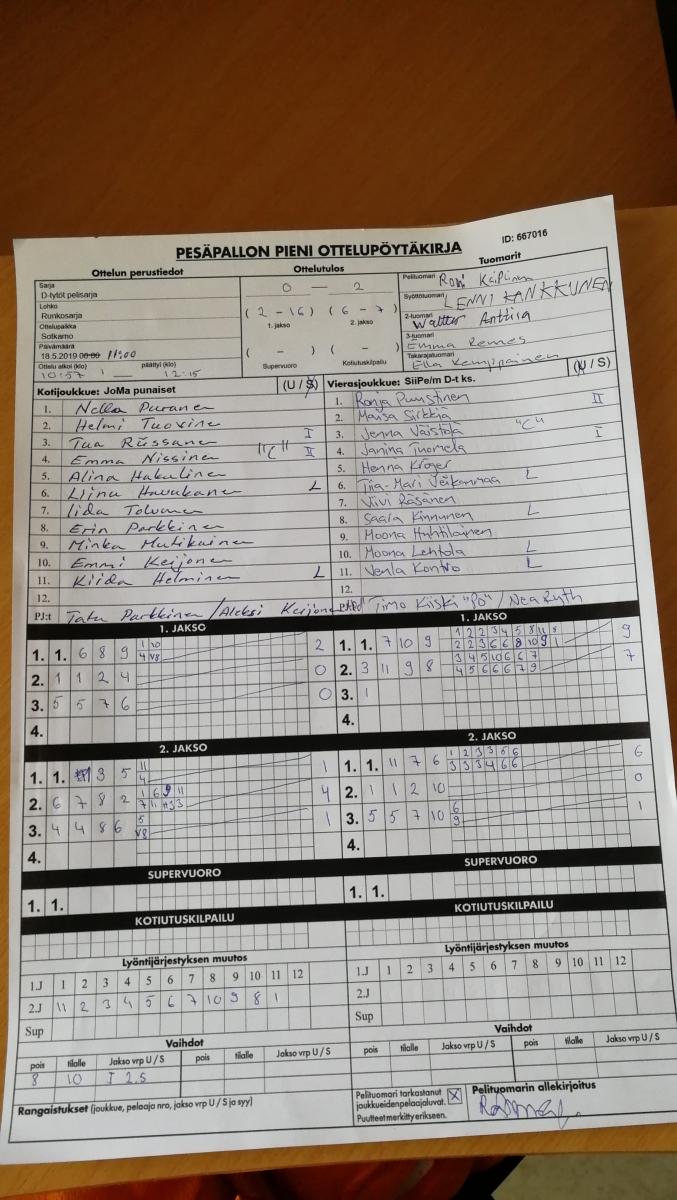 ID: 667016
PESÄPALLON PIENI OTTELUPÖYTÄKIRJA
Ottelun perustiedot
Sarja
D-tytöt pelisarja
Lohko
Runkosarja
Ottelupaikka
Sotkamo
Päivämäärä
18.5.2019 00:00 11:00
Ottelu alkoi (klo) päättyi (klo)
10:57 — 12:15
Ottelutulos
0 — 2
(2 - 16) (6 - 7)
1. jakso 2. jakso
( - ) ( - )
Supervuoro Kotiutuskilpailu
Tuomarit
Pelituomari
Syöttötuomari LENNI KANKKUNEN
2-tuomari Waltter Anttila
3-tuomari
Emma Remes
Takarajatuomari
Ella Kemppainen
Kotijoukkue: JoMa punaiset (U / S)
1. Nella Puranen
2. Helmi Tuovinen
3. Tua Rüssanen I
4. Emma Nissinen "C" II
5. Alina Hakulinen
6. Liina Huvukanen L
7. Iida Tolvanen
8. Erin Parkkinen
9. Minka Mutikainen
10. Emmi Keijonen
11. Kiida Helminen L
12.
PJ:t Tatu Parkkinen / Aleksi Keijonen
Vierasjoukkue: SiiPe/m D-t ks. (U / S)
1. Ronja Puustinen II
2. Maisa Sirkkiä
3. Jenna Väistöjä "C"
4. Janina Tuomela I
5. Henna Kröger
6. Tiia-Mari Veikanmaa L
7. Viivi Räsänen
8. Saara Kinnunen L
9. Moona Huhtilainen
10. Moona Lehtola L
11. Venla Kontio L
12.
Timo Kiiski "PO" / Nea Ryth
1. JAKSO
1. 1. 6 8 9 1 10 2
4 V8
2. 1 1 2 4 0
3. 5 5 7 6 0
4.
2. JAKSO
1. 1. 3 5 11 1
4
2. 6 7 8 2 1 6 9 11 4
7 11 3
3. 4 4 8 6 5 1
V8
4.
SUPERVUORO
1. 1.
KOTIUTUSKILPAILU
1. JAKSO
1. 1. 7 10 9 1 2 2 3 4 5 8 11 8 9
2 2 3 6 6 8 10 9 1
2. 3 11 9 8 3 4 5 10 6 6 7 7
4 5 6 6 6 7 9
3. 1
4.
2. JAKSO
1. 1. 11 7 6 1 2 3 3 5 6 6
3 3 3 4 6 6
2. 1 1 2 10 0
3. 5 5 7 10 6 1
9
4.
SUPERVUORO
1. 1.
KOTIUTUSKILPAILU
Lyöntijärjestyksen muutos
1.J 1 2 3 4 5 6 7 8 9 10 11 12
2.J 11 2 3 4 5 6 7 10 9 8 1
Sup
Vaihdot
pois tilalle Jakso vrp U / S pois tilalle Jakso vrp U / S
8 10 I 2.S
Rangaistukset (joukkue, pelaaja nro, jakso vrp U / S ja syy)
Lyöntijärjestyksen muutos
1.J 1 2 3 4 5 6 7 8 9 10 11 12
2.J
Sup
Vaihdot
pois tilalle Jakso vrp U / S pois tilalle Jakso vrp U / S
Pelituomari tarkastanut
joukkueiden pelaajaluvat. X
Puutteet merkitty erikseen.
Pelituomarin allekirjoitus